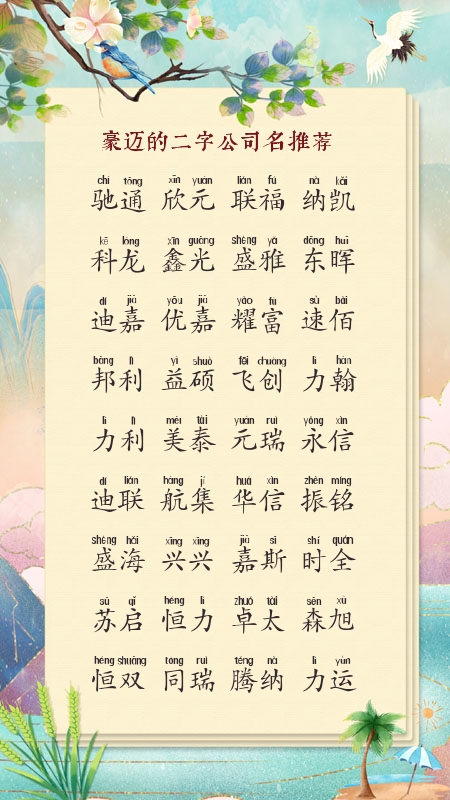 豪迈的二字公司名推荐
chí tōng xīn yuán lián fú nà kǎi
驰通 欣元 联福 纳凯
kē lóng xīn guāng shèng yǎ dōng huī
科龙 鑫光 盛雅 东晖
dí jiā yōu jiā yào fù sù bǎi
迪嘉 优嘉 耀富 速佰
bāng lì yì shuò fēi chuàng lì hàn
邦利 益硕 飞创 力翰
lì lì měi tài yuán ruì yǒng xìn
力利 美泰 元瑞 永信
dí lián háng jí huá xìn zhèn míng
迪联 航集 华信 振铭
shèng hǎi xīng xīng jiā sī shí quán
盛海 兴兴 嘉斯 时全
sū qǐ héng lì zhuó tài sēn xù
苏启 恒力 卓太 森旭
héng shuāng tóng ruì téng nà lì yùn
恒双 同瑞 腾纳 力运